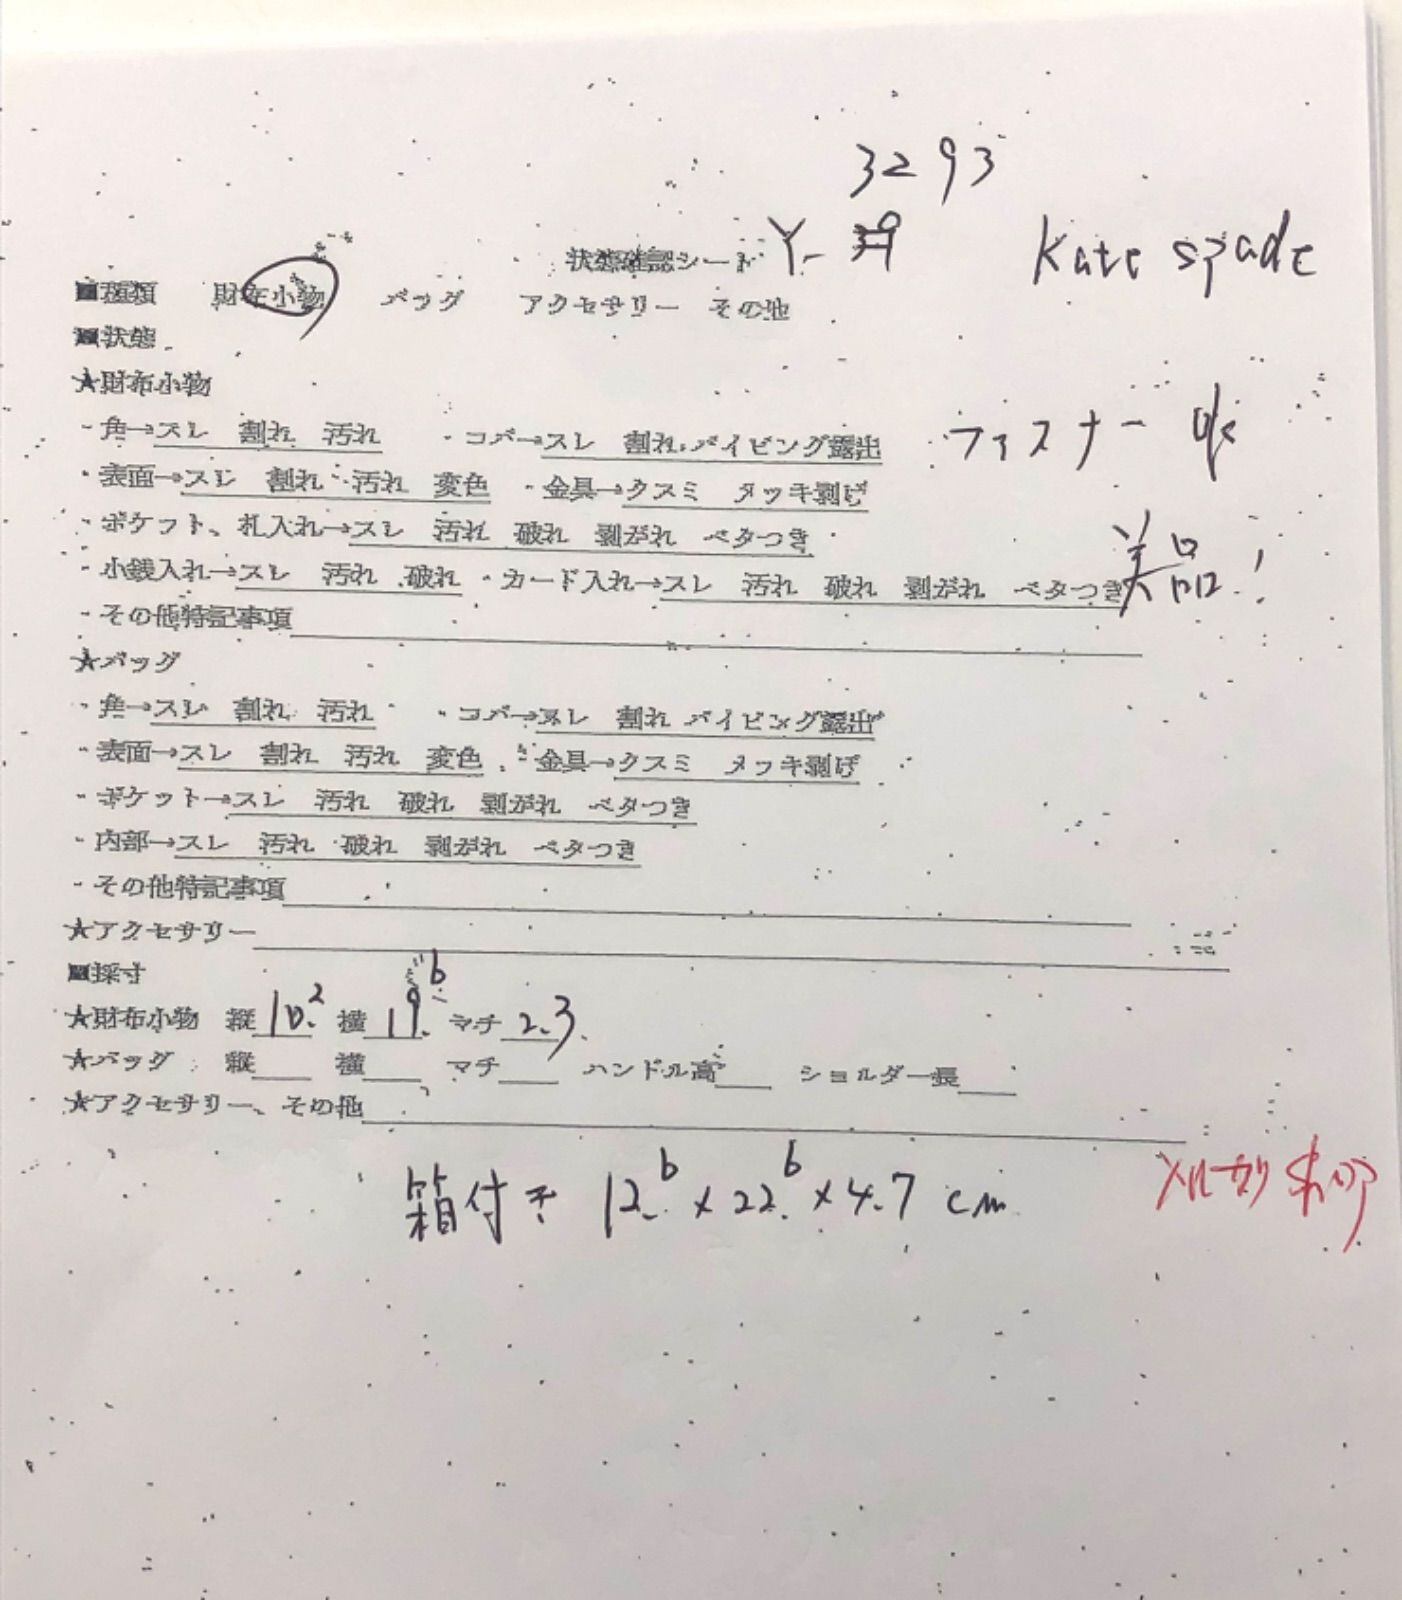 3293
状態確認シート Y- Kate spade
■種類 財布小物 バッグ アクセサリー その他
■状態
★財布小物
・角→スレ 割れ 汚れ ・コバ→スレ 割れ パイピング露出 ファスナー ok
・表面→スレ 割れ 汚れ 変色 ・金具→クスミ メッキ剥げ
・ポケット、札入れ→スレ 汚れ 破れ 剥がれ ベタつき
・小銭入れ→スレ 汚れ 破れ ・カード入れ→スレ 汚れ 破れ 剥がれ ベタつき 美品!
・その他特記事項
★バッグ
・角→スレ 割れ 汚れ ・コバ→スレ 割れ パイピング露出
・表面→スレ 割れ 汚れ 変色 ・金具→クスミ メッキ剥げ
・ポケット→スレ 汚れ 破れ 剥がれ ベタつき
・内部→スレ 汚れ 破れ 剥がれ ベタつき
・その他特記事項
★アクセサリー
■採寸
★財布小物 縦 10.2 横 19.6 マチ 2.3
★バッグ 縦 横 マチ ハンドル高 ショルダー長
★アクセサリー、その他
箱付き 12.6×22.6×4.7cm